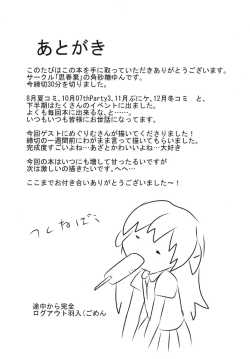 あとがき
このたびはこの本を手に取っていただきありがとうございます。
サークル「思春期」の角砂糖ゆんです。
今締切30分を切りました。
8月夏コミ、10月07thParty3、11月ぷにケ、12月冬コミ と、
下半期はたくさんのイベントに出ました。
よくも毎回本に出れるな、と……。
いつもいつも皆様にお世話になってます。
今回ゲストにめぐりむさんが描いてくださりました!
締切の一週間前にわがまま言って描いてもらいました。
完成度すごいよね…あざとかわいいよね…大好き
今回の本はいつにも増して甘ったるいですが
次は激しいの描きたいです、へへ…
ここまでお付き合いありがとうございました~!
つくねば
途中から完全
ログアウト羽入(ごめん